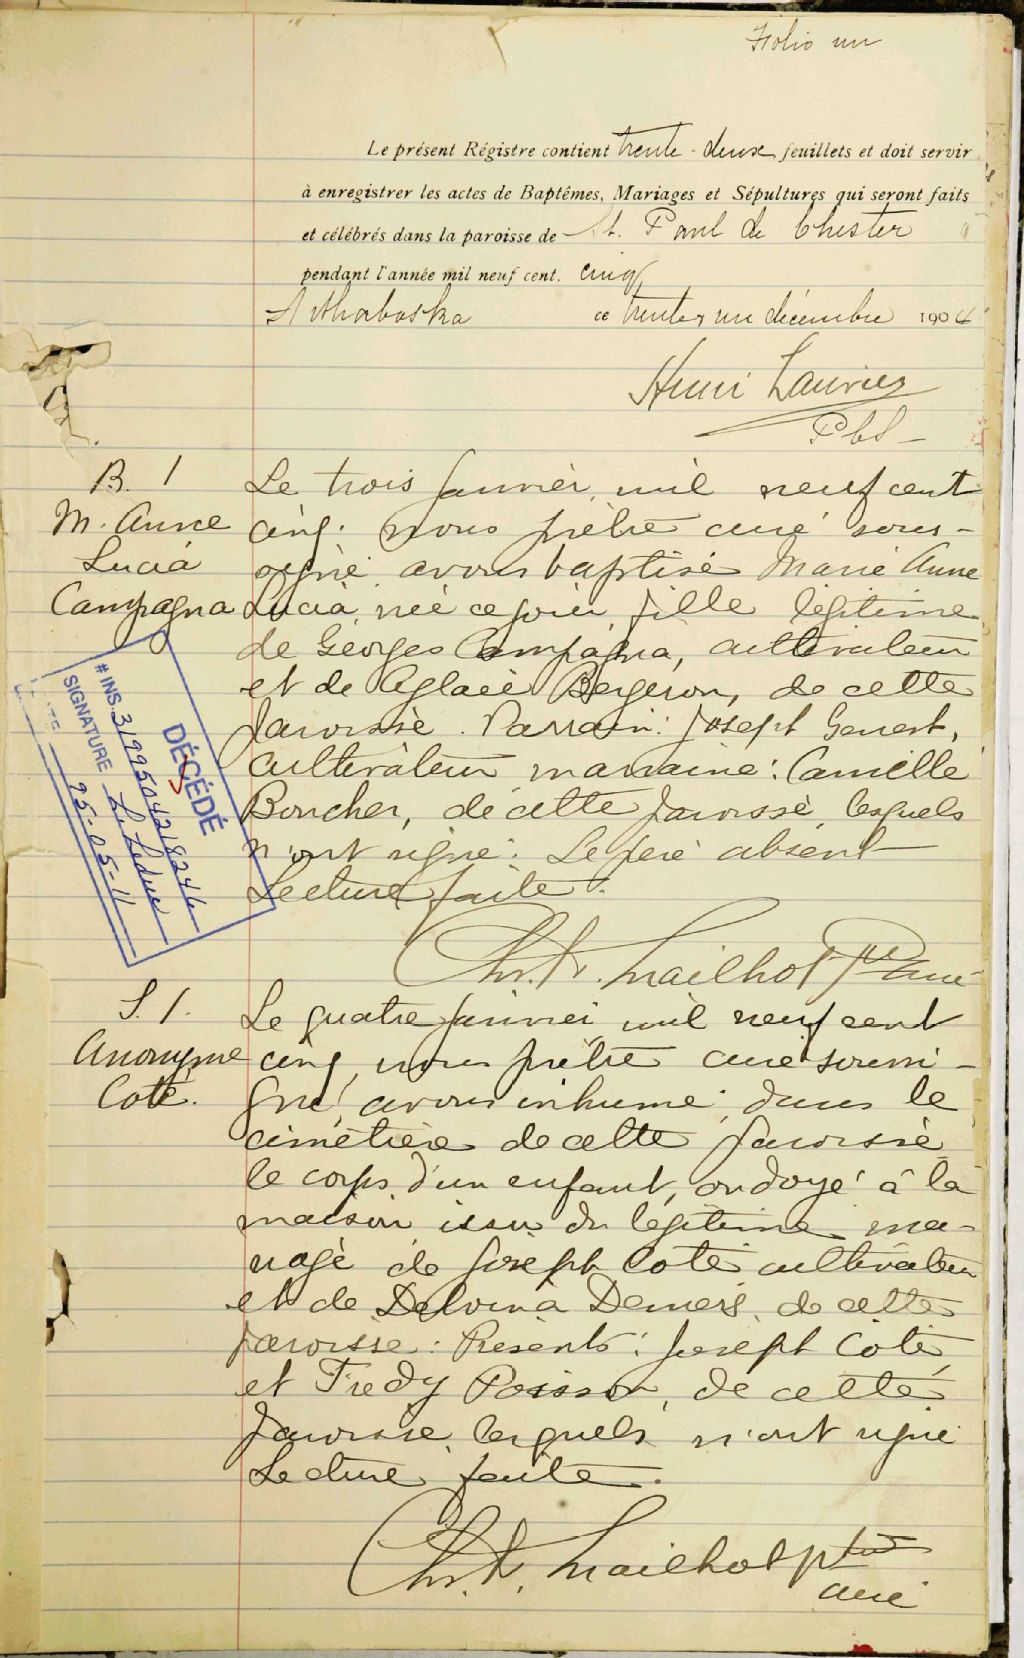 Folio un
Le présent Régistre contient trente-deux feuillets et doit servir
à enregistrer les actes de Baptêmes, Mariages et Sépultures qui seront faits
et célébrés dans la paroisse de St. Paul de Chester
pendant l'année mil neuf cent. cinq
Arthabaska ce trente un décembre 1904
Henri
B. 1
M. Anne
Lucia
Campagna
Le trois janvier, mil neuf cent
cinq. nous prêtre curé sous-
signé avons baptisé Marie Anne
Lucia, née ce jour, fille légitime
de Georges Campagna, cultivateur
et de Aglaée Bergeron, de cette
paroisse. Parrain: Joseph Genest,
cultivateur marraine: Camille
Boucher, de cette paroisse, lesquels
n'ont signé. Le père absent
Lecture faite.
DÉCÉDÉ
# INS. 3199504218246
SIGNATURE L. Leduc
25-05-11
Mailhot Ptre curé
S. 1.
Anonyme
Coté.
Le quatre janvier, mil neuf cent
cinq, nous prêtre curé soussi-
gné, avons inhumé, dans le
cimetière de cette paroisse
le corps d'un enfant, ondoyé à la
maison issu du légitime ma-
riage de Joseph Coté cultivateur
et de Delvina Demers, de cette
paroisse: Présents: Joseph Coté,
et Fredy Poisson, de cette
paroisse lesquels n'ont signé
Lecture faite.
Mailhot ptre
curé